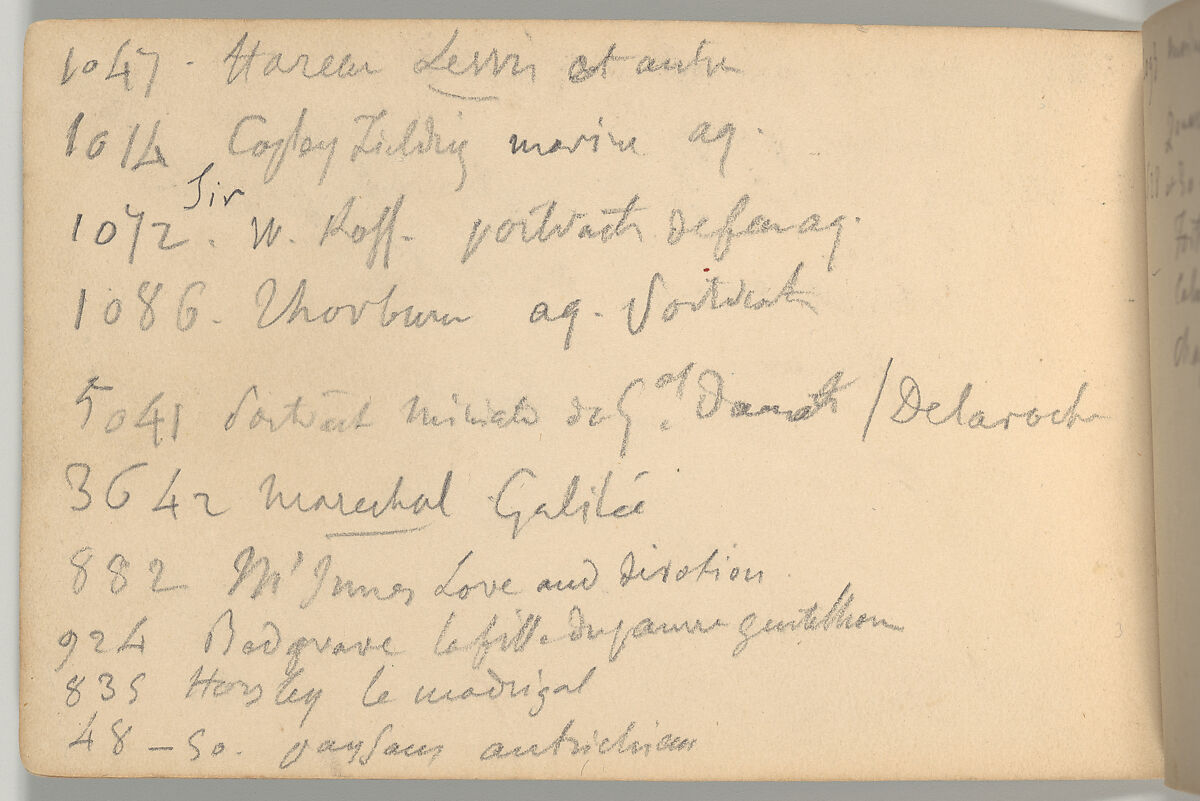 1047 - Harem Lewis et autre
1014 Copley Fielding marine aq.
Sir
1072. W. Ross. portraits de fem aq.
1086. Thorburn aq. Portrait
5041 Portrait du G.al / Delaroche
3642 Marechal Galilée
882 Mc Innes Love and devotion
924 Redgrave la fille du pauvre gentilhom
835 Horsley le madrigal
48 - 50. paysans autrichiens